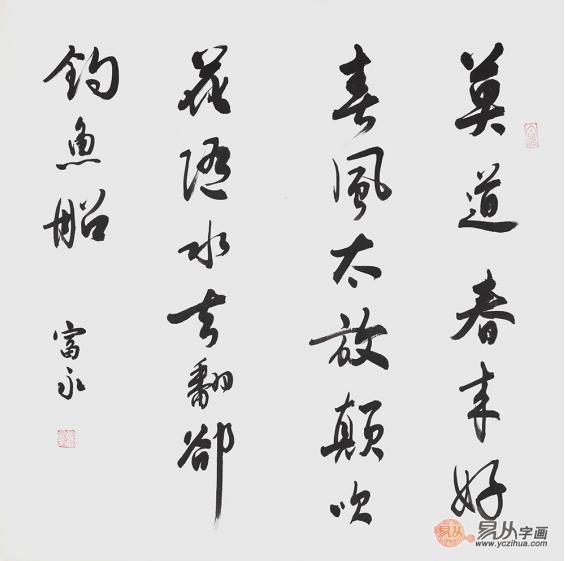 莫道春来好
春風太放顛吹
花隨水去翻卻
釣魚船
富永
易从字画
www.yczihua.com